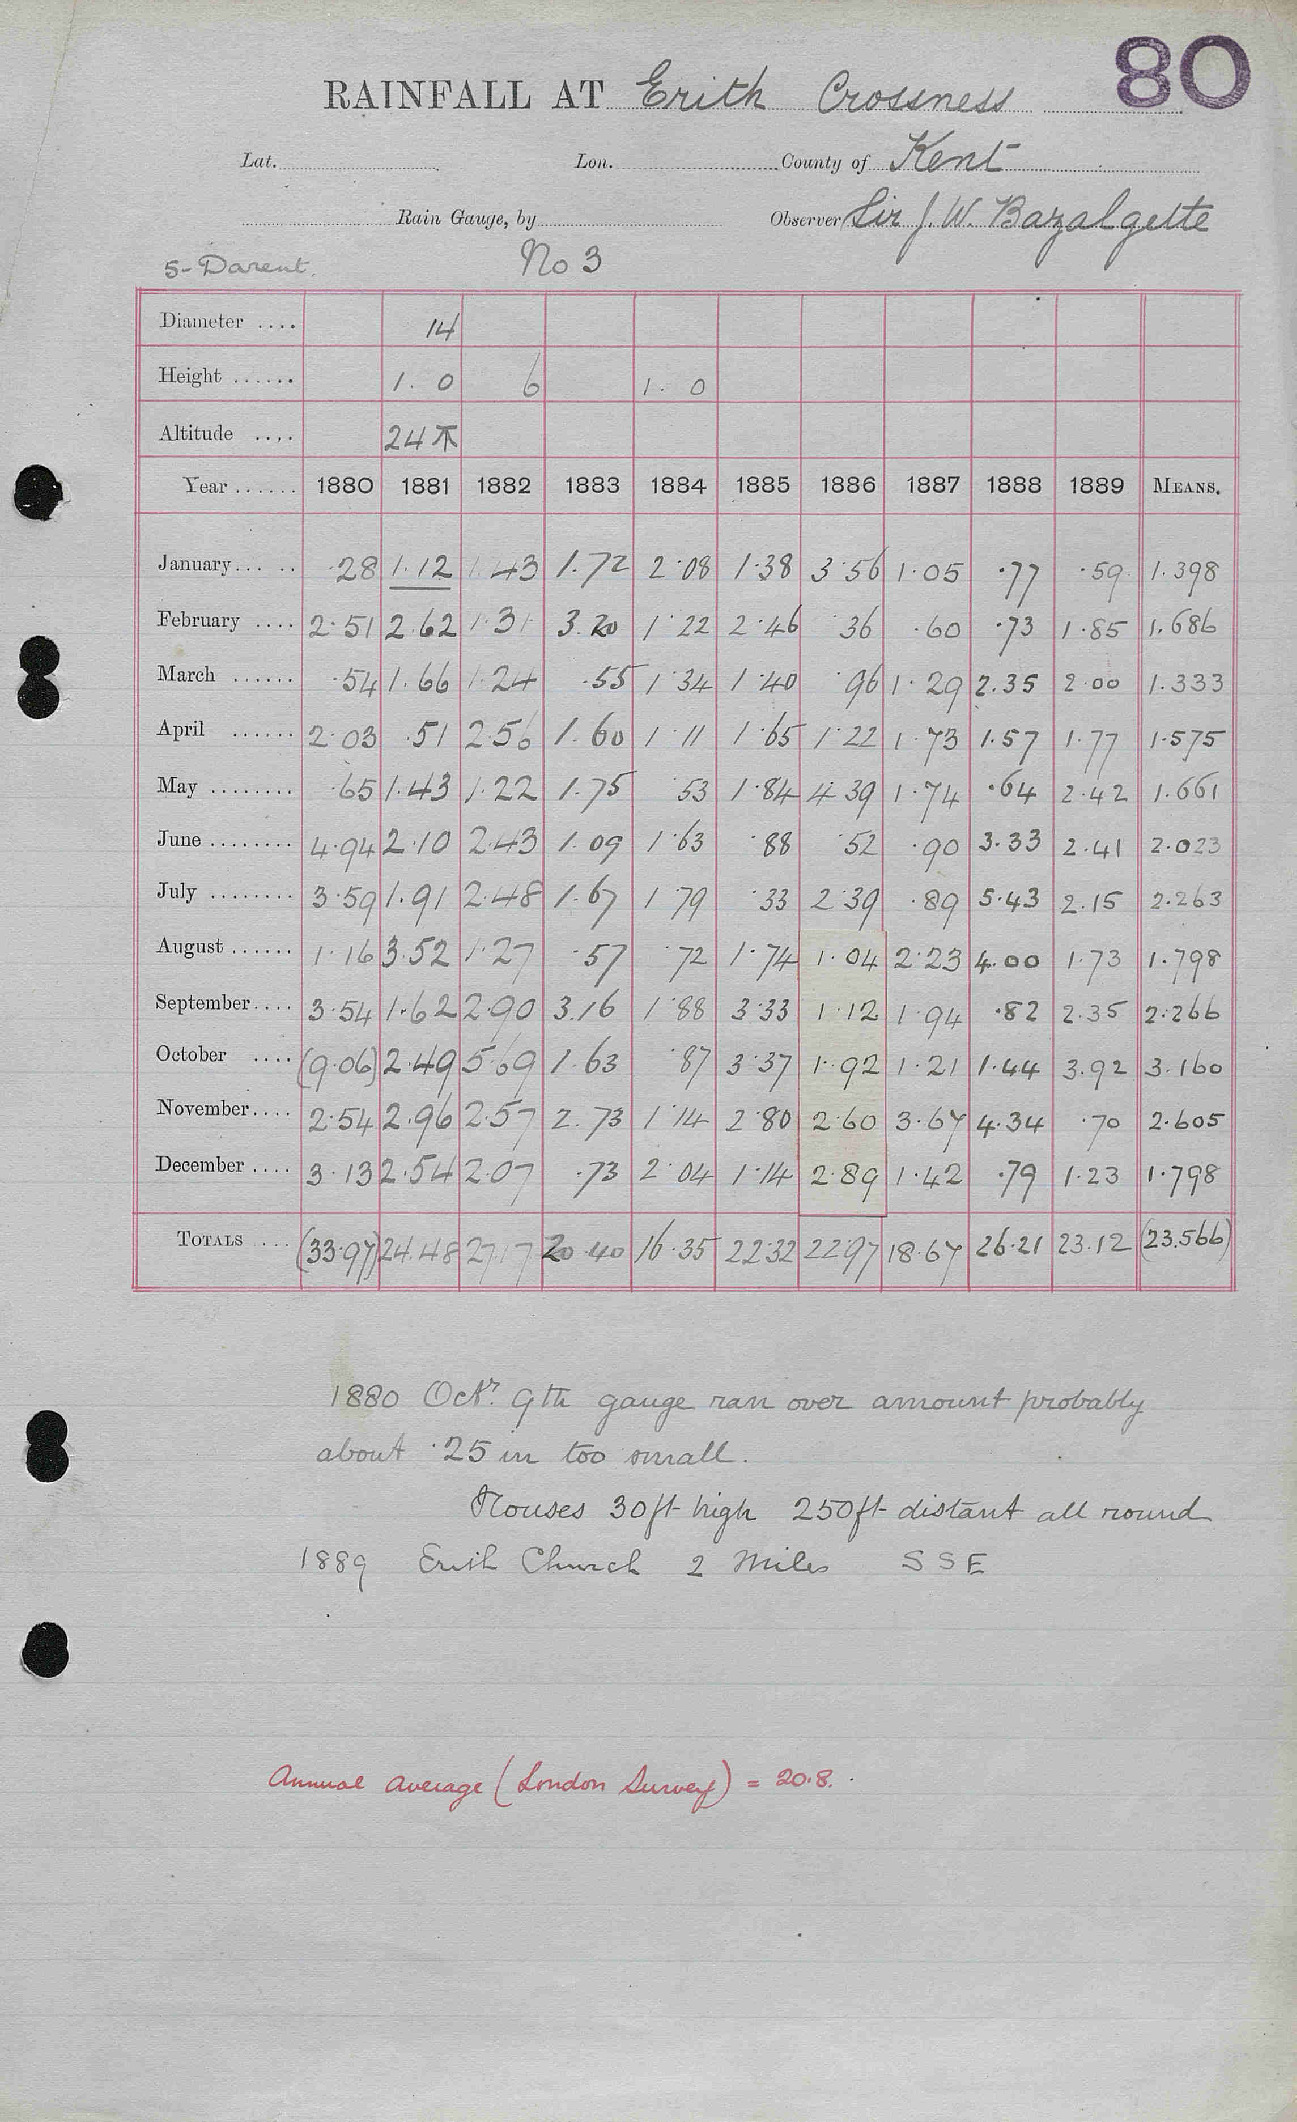 80
RAINFALL AT Erith Crossness
Lat. Lon. County of Kent
Rain Gauge, by Observer Sir J. W. Bazalgette
5-Darent. No 3
Diameter .... 14
Height ...... 1. 0 6 1. 0
Altitude .... 24
Year ...... 1880 1881 1882 1883 1884 1885 1886 1887 1888 1889 MEANS.
January.... .. ·28 1.12 1.43 1.72 2·08 1·38 3·56 1·05 ·77 ·59 1.398
February .... 2·51 2.62 1·31 3.20 1·22 2·46 ·36 ·60 ·73 1·85 1.686
March ...... ·54 1.66 1·24 ·55 1·34 1·40 ·96 1·29 2.35 2·00 1.333
April ...... 2·03 ·51 2·56 1.60 1·11 1·65 1·22 1·73 1.57 1.77 1·575
May ........ ·65 1.43 1·22 1.75 ·53 1·84 4·39 1·74 ·64 2·42 1.661
June ........ 4·94 2·10 2·43 1·09 1·63 ·88 ·52 ·90 3·33 2·41 2·023
July ........ 3·59 1.91 2·48 1·67 1·79 ·33 2·39 ·89 5·43 2·15 2·263
August ...... 1·16 3.52 1·27 ·57 ·72 1·74 1·04 2·23 4.00 1·73 1·798
September.... 3·54 1·62 2·90 3.16 1·88 3·33 1·12 1·94 ·82 2·35 2·266
October .... (9·06) 2·49 5·69 1·63 ·87 3·37 1·92 1·21 1·44 3.92 3·160
November.... 2·54 2.96 2·57 2.73 1·14 2·80 2·60 3·67 4·34 ·70 2·605
December .... 3·13 2·54 2·07 ·73 2·04 1·14 2·89 1·42 ·79 1·23 1·798
TOTALS .... (33·97) 24.48 27.17 20·40 16·35 22·32 22·97 18·67 26·21 23.12 (23.566)
1880 Octr. 9th gauge ran over amount probably
about ·25 in too small.
Houses 30ft high 250ft distant all round
1889 Erith Church 2 Miles S S E
Annual average (London Survey) = 20.8.